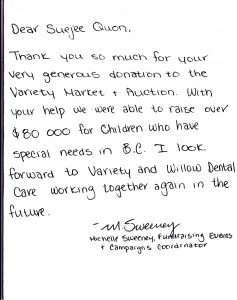 Dear Suejee Quon,
Thank you so much for your
very generous donation to the
Variety Market + Auction. With
your help we were able to raise over
$80 000 for Children who have
special needs in B.C. I look
forward to Variety and Willow Dental
Care working together again in the
future.
-M. Sweeney
Michelle Sweeney, Fundraising Events
+ Campaigns Coordinator